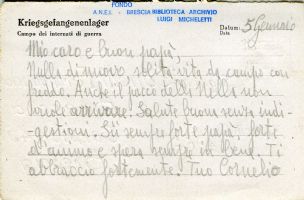 FONDO
A.N.E.I. - BRESCIA BIBLIOTECA ARCHIVIO
LUIGI MICHELETTI
Kriegsgefangenenlager
Campo dei internati di guerra
Datum: 5 Gennaio
Data
Mio caro e buon papà,
Nulla di nuovo, solita vita da campo con
freddo. Anche il pacco della Nella non
vuole arrivare. Salute buona senza indi-
gestioni. Sii sempre forte papà, forte
d'animo e spera sempre in bene. Ti
abbraccio fortemente. Tuo Cornelio